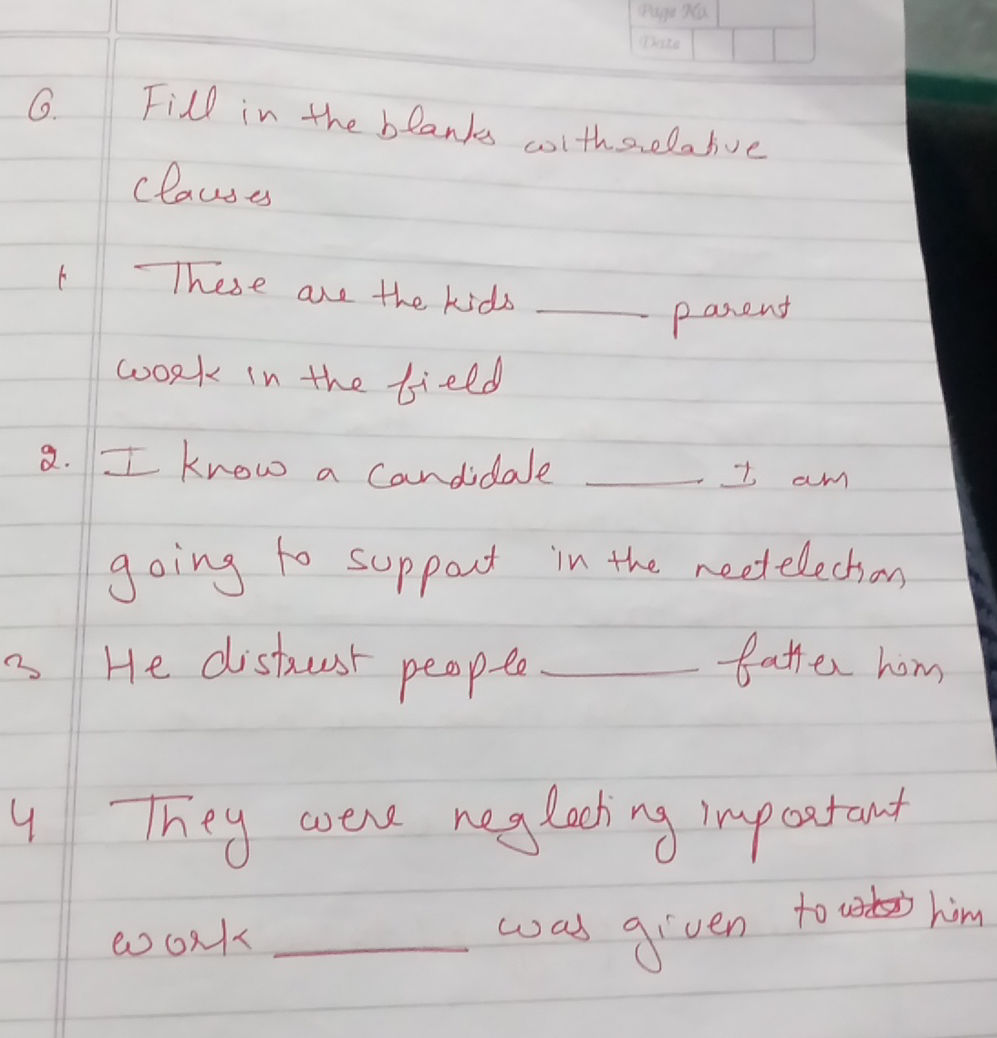 Page No.
Date
6. Fill in the blanks with relative
clauses
1. These are the kids ______ parent
work in the field
2. I know a candidate ______ I am
going to support in the next election
3 He distrust people ______ fatter him
4 They were neglecting important
work ______ was given to him